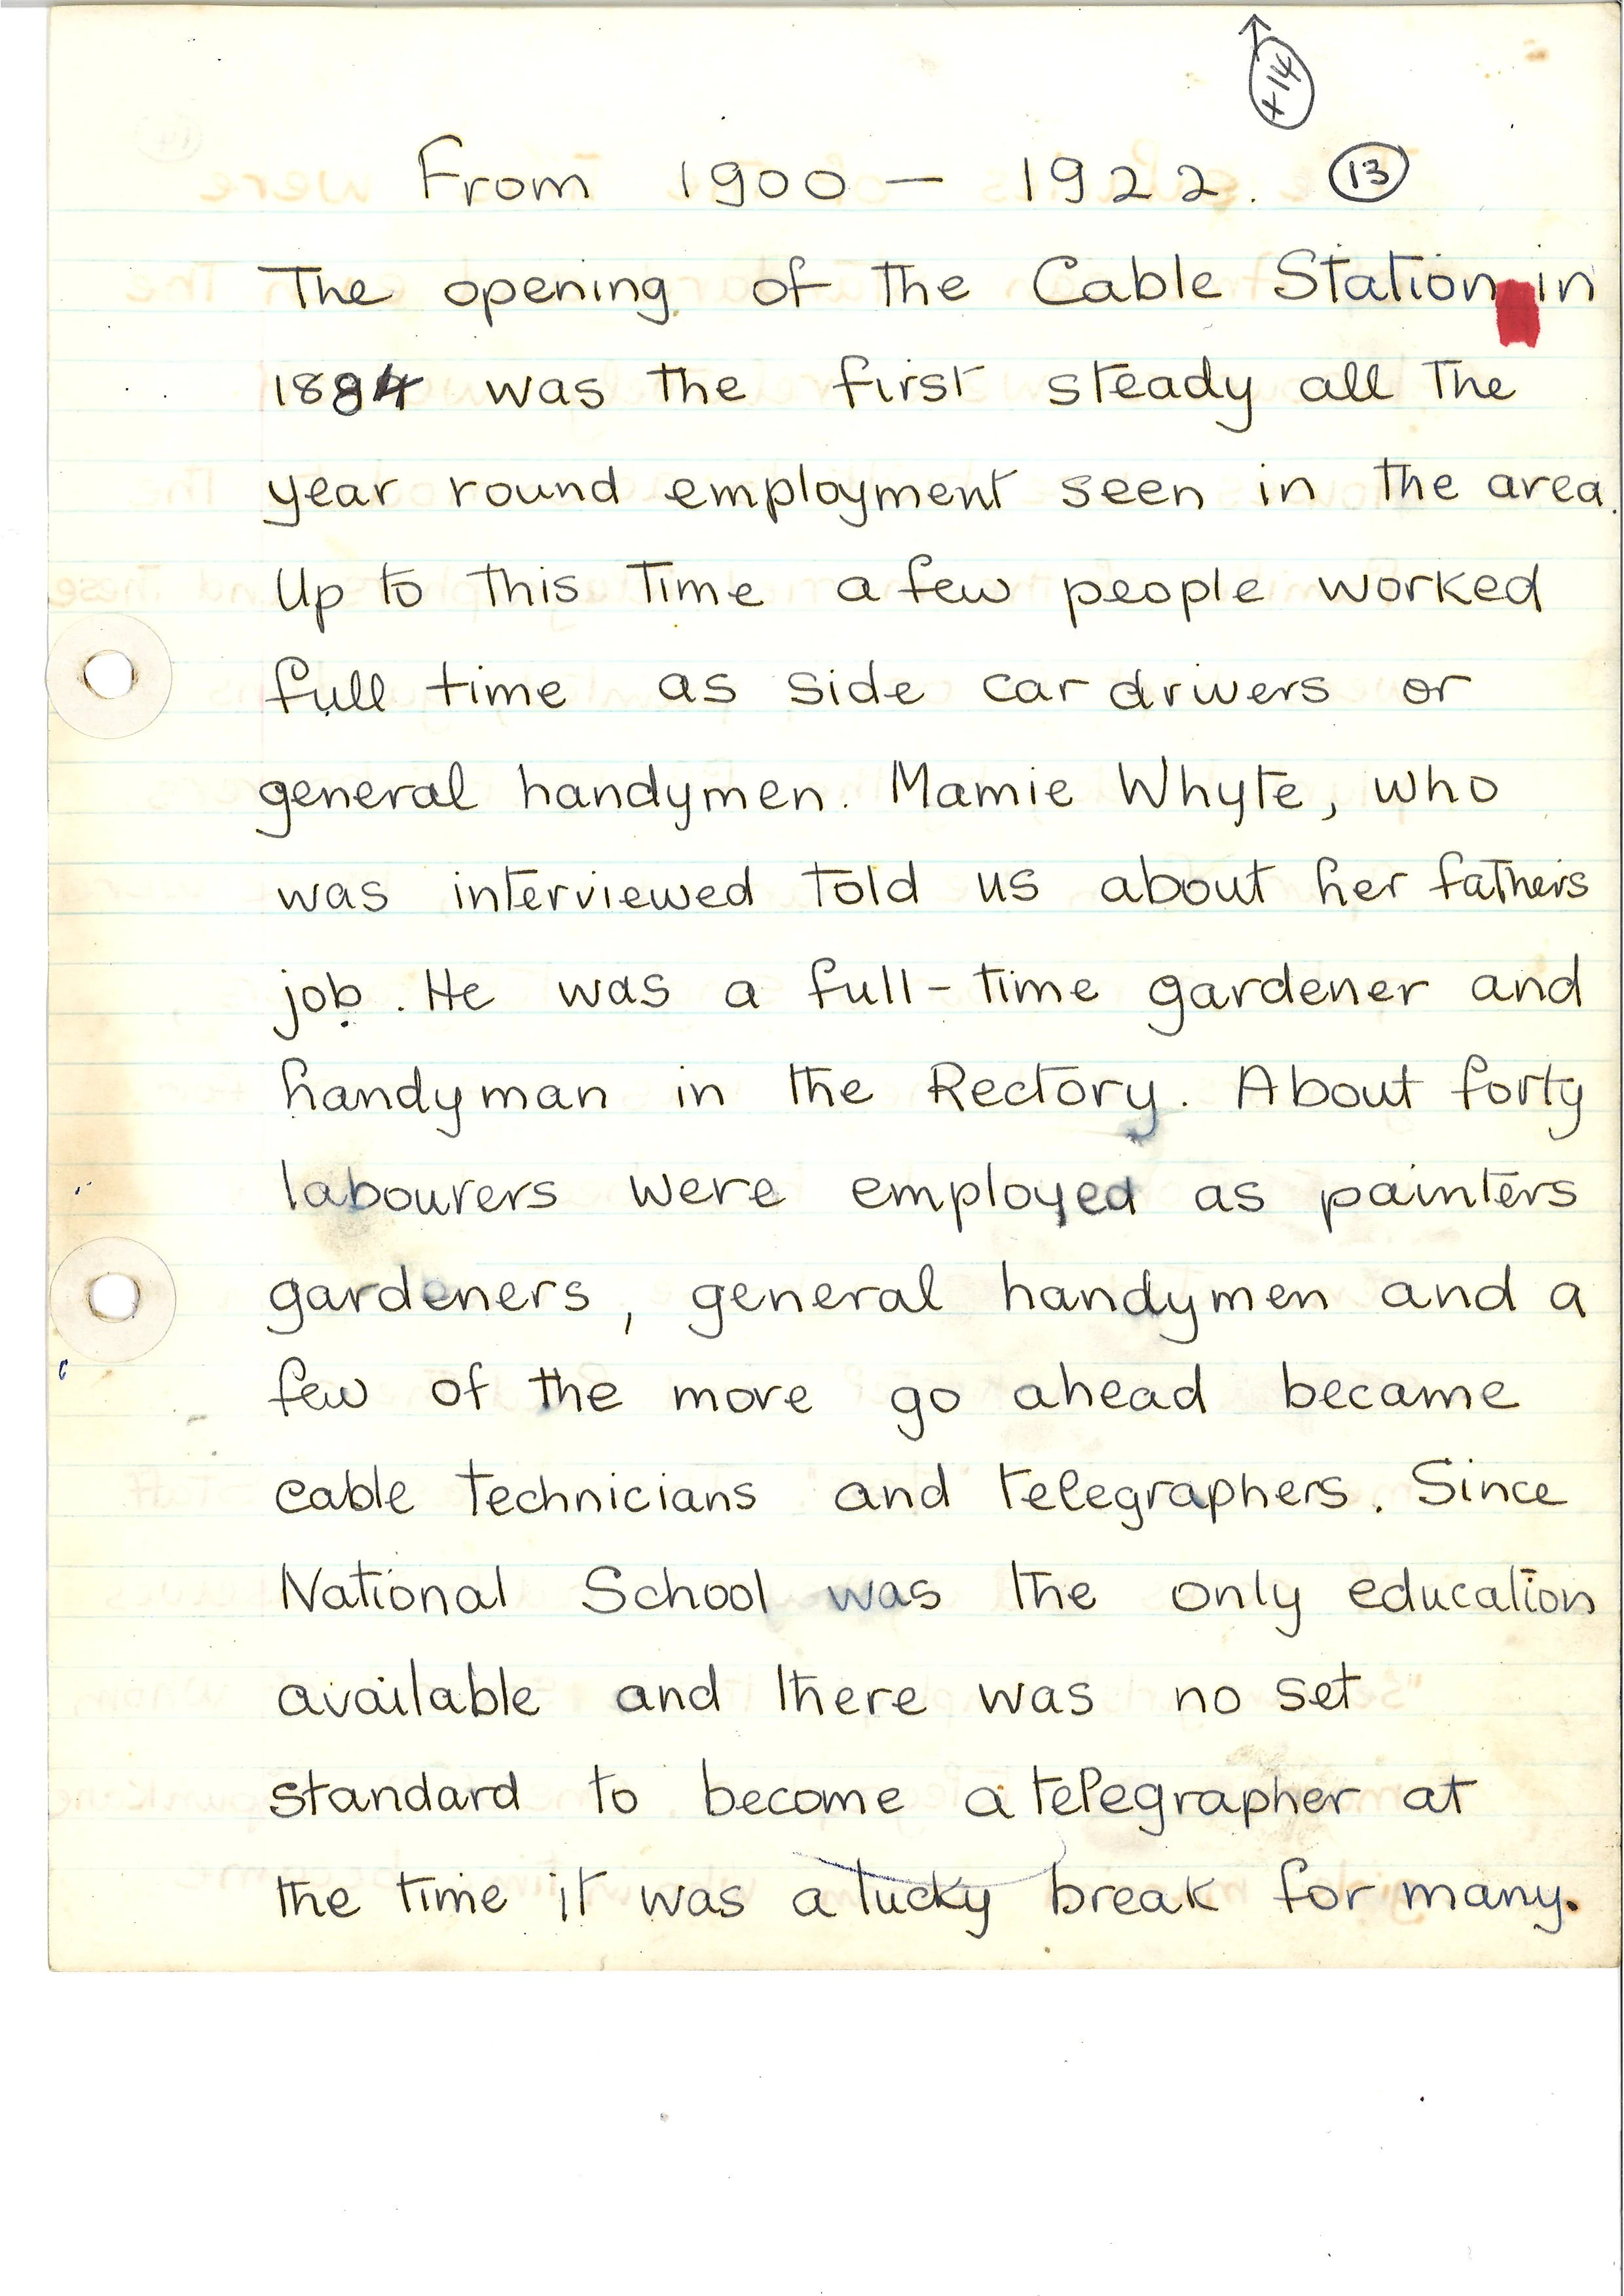 +14
From 1900 - 1922. 13
The opening of the Cable Station in
1884 was the first steady all the
year round employment seen in the area.
Up to this time a few people worked
full time as side car drivers or
general handymen. Mamie Whyte, who
was interviewed told us about her fathers
job. He was a full-time gardener and
handyman in the Rectory. About forty
labourers were employed as painters
gardeners, general handymen and a
few of the more go ahead became
cable technicians and telegraphers. Since
National School was the only education
available and there was no set
standard to become a telegrapher at
the time it was a lucky break for many.